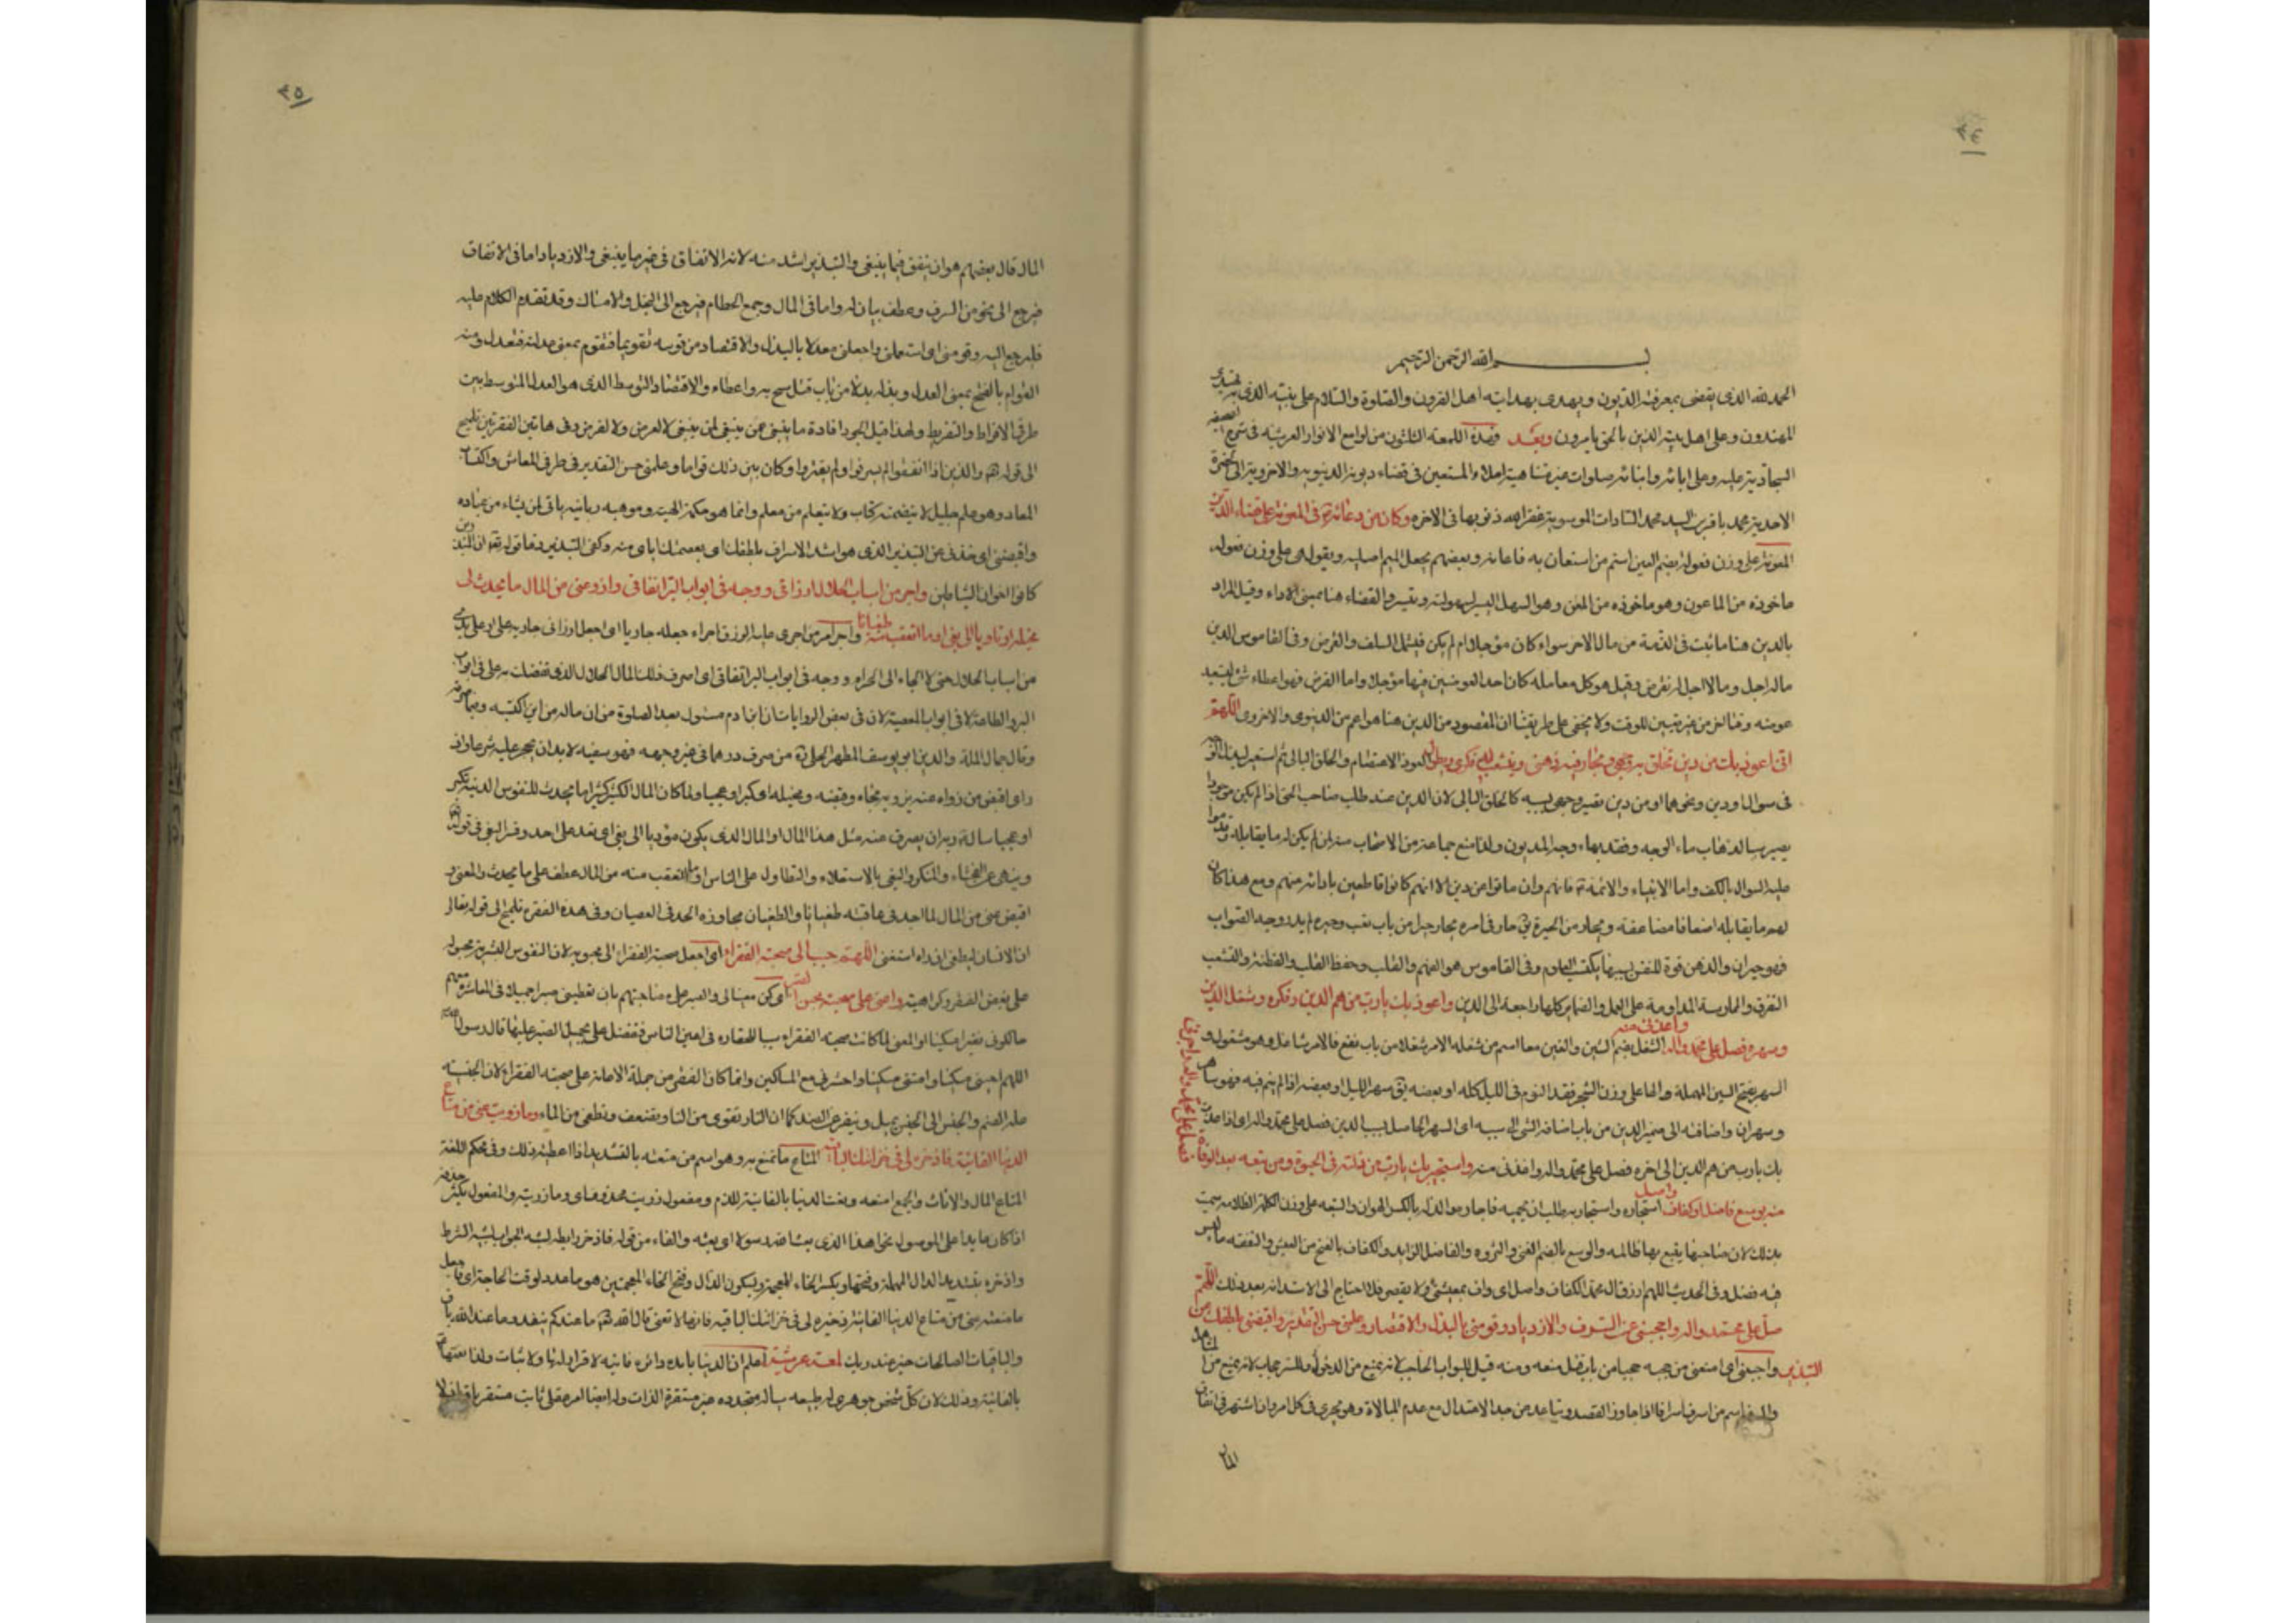 ٣٤
بسم الله الرحمن الرحيم
الحمد لله الذى يقضى بمعرفته الديون ويهدى بهدايته اهل القرون والصلوة والسلام على نبيه الذى به يهتدى
المهتدون وعلى اهل بيته الذين بالحق يأمرون وبعد فهذه اللمعة الثلثون من لوامع الانوار العرشية فى شرح الصحيفة
السجادية عليه وعلى ابائه وابنائه صلوات غير متناهية املاء المستعين فى قضاء ديونه الدينويه والاخروية الى الحضرة
الاحدية محمد باقر بن السيد محمد السادات الموسوية غفر الله ذنوبها فى الاخره وكان من دعائه فى المعونة على قضاء الدين
المعونة على وزن فعوله بضم العين اسم من استعان به فاعانه وبعضهم يجعل الميم اصليه ويقول هى على وزن فعوله
ماخوذه من الماعون وهو ماخوذه من المعن وهو السهل اليسير لسهولته وتيسره والقضاء هنا بمعنى الاداء وقيل المراد
بالدين هنا ما ثبت فى الذمة من مال الاخر سواء كان مؤجلا ام لم يكن فيشمل السلف والقرض وفى القاموس الدين
ماله اجل وما لا اجل له فقرض وقيل هو كل معامله كان احد العوضين فيها مؤجلا واما القرض فهو اعطاء شئ ليستعيد
عوضه وقتا اخر من غير تعيين للوقت ولا يخفى على طريقتنا ان المقصود من الدين هنا هو اعم من الدنيوى والاخروى اللهم
انى اعوذ بك من دين تخلق به وجهى ويحار فيه ذهنى ويتشعب له فكرى ويطول العوذ الاعتصام والخلق البالى ثم استعير لبذل الوجه
فى سؤال او دين ونحوهما او من دين تغير وجهى بسببه كالخلق البالى لان الدين عند طلب صاحب الحق اذا لم يكن موجودا
يصير سببا لذهاب ماء الوجه وفقد بهاء وجه المديون ولذا منع جماعة من الاصحاب منه لمن لم يكن له ما يقابله
عليه السؤال بالكف واما الانبياء والائمة فانهم وان ماتوا عن دين الا انهم كانوا قاطعين بادائه منهم ومع هذا كان
لهم ما يقابله اضعافا مضاعفة ويحار من الحيرة يق حار فى امره يحار حيرا من باب تعب وحيره لم يدر وجه الصواب
فهو حيران والذهن قوة للنفس بسببها يكتسب العلوم وفى القاموس هو الفهم والقلب وحفظ القلب والفطنة والتشعب
التفرق والممارسة المداومة على العمل والضماير كلها راجعة الى الدين واعوذ بك يا رب من هم الدين وفكره وشغل الدين
وسهره فصل على محمد واله واعذنى منه الشغل بضم الشين والغين معا اسم من شغله الامر شغلا من باب نفع فالامر شاغل وهو مشغول و
السهر بفتح السين المهملة والهاء على وزن الشجر فقد النوم فى الليل كله او بعضه يق سهر الليل او بعضه اذا لم ينم فيه فهو ساهر
وسهران واضافته الى ضمير الدين من باب اضافة الشئ الى سببه اى السهر الحاصل بسبب الدين فصل على محمد واله اى اذا عذت
بك يا رب من هم الدين الى اخره فصل على محمد واله واعذنى منه واستجير بك يا رب من ذلته فى الحيوة ومن تبعته بعد الوفاة
فصل على محمد واله واجرنى
منه بوسع فاضل او كفاف واصل استجاره واستجار به طلب ان يحميه فاجاره والذلة بالكسر الهوان والتبعة على وزن الكلمة الظلامة سميت
بذلك لان صاحبها يتبع بها ظالمه والوسع بالضم الغنى والثروه والفاضل الزايد والكفاف بالفتح من العيش والنفقة ما ليس
فيه فضل وفى الحديث اللهم ارزق ال محمد الكفاف واصل اى واف بمعيشتى ولا يقصر فلا احتاج الى الاستدانه بعد ذلك اللهم
صل على محمد واله واحجبنى عن السرف والازدياد وقومنى بالبذل والاقتصاد وعلمنى حسن التقدير واقبضنى بلطفك من
التبذير واحجبنى اى امنعنى من حجبه حجبا من باب قتل منعه ومنه قيل للبواب الحاجب لانه يمنع من الدخول وللستر حجاب لانه يمنع من المشاهدة
والسرف اسم من اسرف اسرافا اذا جاوز القصد وتباعد من حد الاعتدال مع عدم المبالاة وهو يجرى فى كل امر وان اشتهر فى انفاق
المال
٣٥
المال قال بعضهم هو ان ينفق فيما ينبغى والتبذير اشد منه لانه الانفاق فى غير ما ينبغى والازدياد اما فى الانفاق
فيرجع الى نحو من السرف وعطف بيان له واما فى المال وجمع الحطام فيرجع الى البخل والامساك وقد تقدم الكلام عليه
فليرجع اليه وقومنى اى استعملنى واجعلنى معدلا بالبذل والاقتصاد من قومه تقويما فتقوم بمعنى عدلته فتعدل ومنه
القوام بالفتح بمعنى العدل وبذله بذلا من باب قتل سمح به واعطاه والاقتصاد التوسط الذى هو العدل المتوسط بين
طرفى الافراط والتفريط ولهذا قيل الجود افادة ما ينبغى عن ينبغى لمن ينبغى لا لعرض ولا لغرض وفى هاتين الفقرتين تلميح
الى قوله تعالى والذين اذا انفقوا لم يسرفوا ولم يقتروا وكان بين ذلك قواما وعلمنى حسن التقدير فى طرفى المعاش واكتساب
المعاد وهو علم جليل لا يتضمنه كتاب ولا يتعلم من معلم وانما هو حكمة الهية وموهبه ربانيه ياتى لمن يشاء من عباده
واقبضنى اى خذنى عن التبذير الذى هو اشد الاسراف بلطفك اى بعصمتك اياى منه وكفى التبذير ذما قوله تعالى ان المبذرين
كانوا اخوان الشياطين واجر من اسباب الحلال ارزاقى ووجه فى ابواب البر انفاقى وازو عنى من المال ما يحدث لى
مخيلة او تاديا الى بغى او ما اتعقب منه طغيانا واجر امر من اجرى عليه الرزق اجراء جعله جاريا اى اجعل ارزاقى جاريه على او على يدى
من اسباب الحلال حتى لا الجاء الى الحرام ووجه فى ابواب البر انفاقى اى اصرف ذلك المال الحلال الذى تفضلت به على فى ابواب
البر والطاعة لا فى ابواب المعصية لان فى بعض الروايات ان ابن ادم مسئول بعد الصلوة من ان ماله من اين اكتسبه وفيما صرفه
وقال جمال الملة والدين ابو يوسف المطهر الحلى ره من صرف درهما فى غير وجهه فهو سفيه لا بد ان يحجر عليه شرعا وازو
اى اقبض من زواه عنه يزويه نحاه وقبضه ومخيلة اى كبرا وعجبا ولما كان المال الكثير كثيرا ما يحدث للنفوس الدنية تكبرا
او عجبا ساله ربه ان يصرف عنه مثل هذا المال او المال الذى يكون مؤديا الى بغى اى تعد على احد وفسر البغى فى قوله تعالى
وينهى عن الفحشاء والمنكر والبغى بالاستعلاء والتطاول على الناس او ما اتعقب منه من المال عطف على ما يحدث والمعنى و
اقبض عنى من المال لما اجد فى عاقبته طغيانا والطغيان مجاوزه الحد فى العصيان وفى هذه الفقره تلميح الى قوله تعالى
ان الانسان ليطغى ان راه استغنى اللهم حبب الى صحبة الفقراء اى اجعل صحبة الفقراء الى محبوبه لان النفوس البشرية مجبولة
على بغض الفقر وكراهيته واعنى على صحبتهم بحسن الصبر اى كن معينا لى والصبر على مصاحبتهم بان تعطينى صبرا جميلا فى المعاشرة معهم
حالكونى فقيرا مسكينا او المعنى لما كانت صحبة الفقراء سببا للحقاره فى اعين الناس فتفضل على بجميل الصبر عليها قال رسول الله
اللهم احينى مسكينا وامتنى مسكينا واحشرنى مع المساكين وانما كان الفقر من جملة الاعانة على صحبة الفقراء لان الجنسية
علة الضم والجنس الى الجنس يميل وينفر عن الضد كما ان النار تقوى من النار وتضعف وتطفى من الماء وما زويت عنى من متاع
الدنيا الفانية فاذخره لى فى خزائنك الباقية المتاع ما تمتع به وهو اسم من متعته بالتشديد اذا اعطيته ذلك وفى محكم اللغة
المتاع المال والاثاث والجمع امتعه ونعت الدنيا بالفانية للذم ومفعول زويت محذوف اى وما زويته والمفعول يكثر حذفه
اذا كان عايدا على الموصول نحو اهذا الذى بعث الله رسولا اى بعثه والفاء من قوله فاذخره رابطه لشبه الجواب بشبه الشرط
واذخره بتشديد الدال المهملة وفتحها وبكسر الخاء المعجمة وبسكون الذال وفتح الخاء المعجمتين هو ما عدد لوقت الحاجة اى اجعل
ما منعته عنى من متاع الدنيا الفانية ذخيره لى فى خزائنك الباقيه فانها لا تفنى قال الله تعالى ما عندكم ينفد وما عند الله باق
والباقيات الصالحات خير عند ربك لمعة عرشية اعلم ان الدنيا بائده داثره فانيه لا قرار لها ولا ثبات ولذا نعتها
بالفانية وذلك لان كل شخص جوهرى له طبيعه سياله متجدده غير مستقرة الذات وله ايضا امر عقلى ثابت مستقر باق ازلا